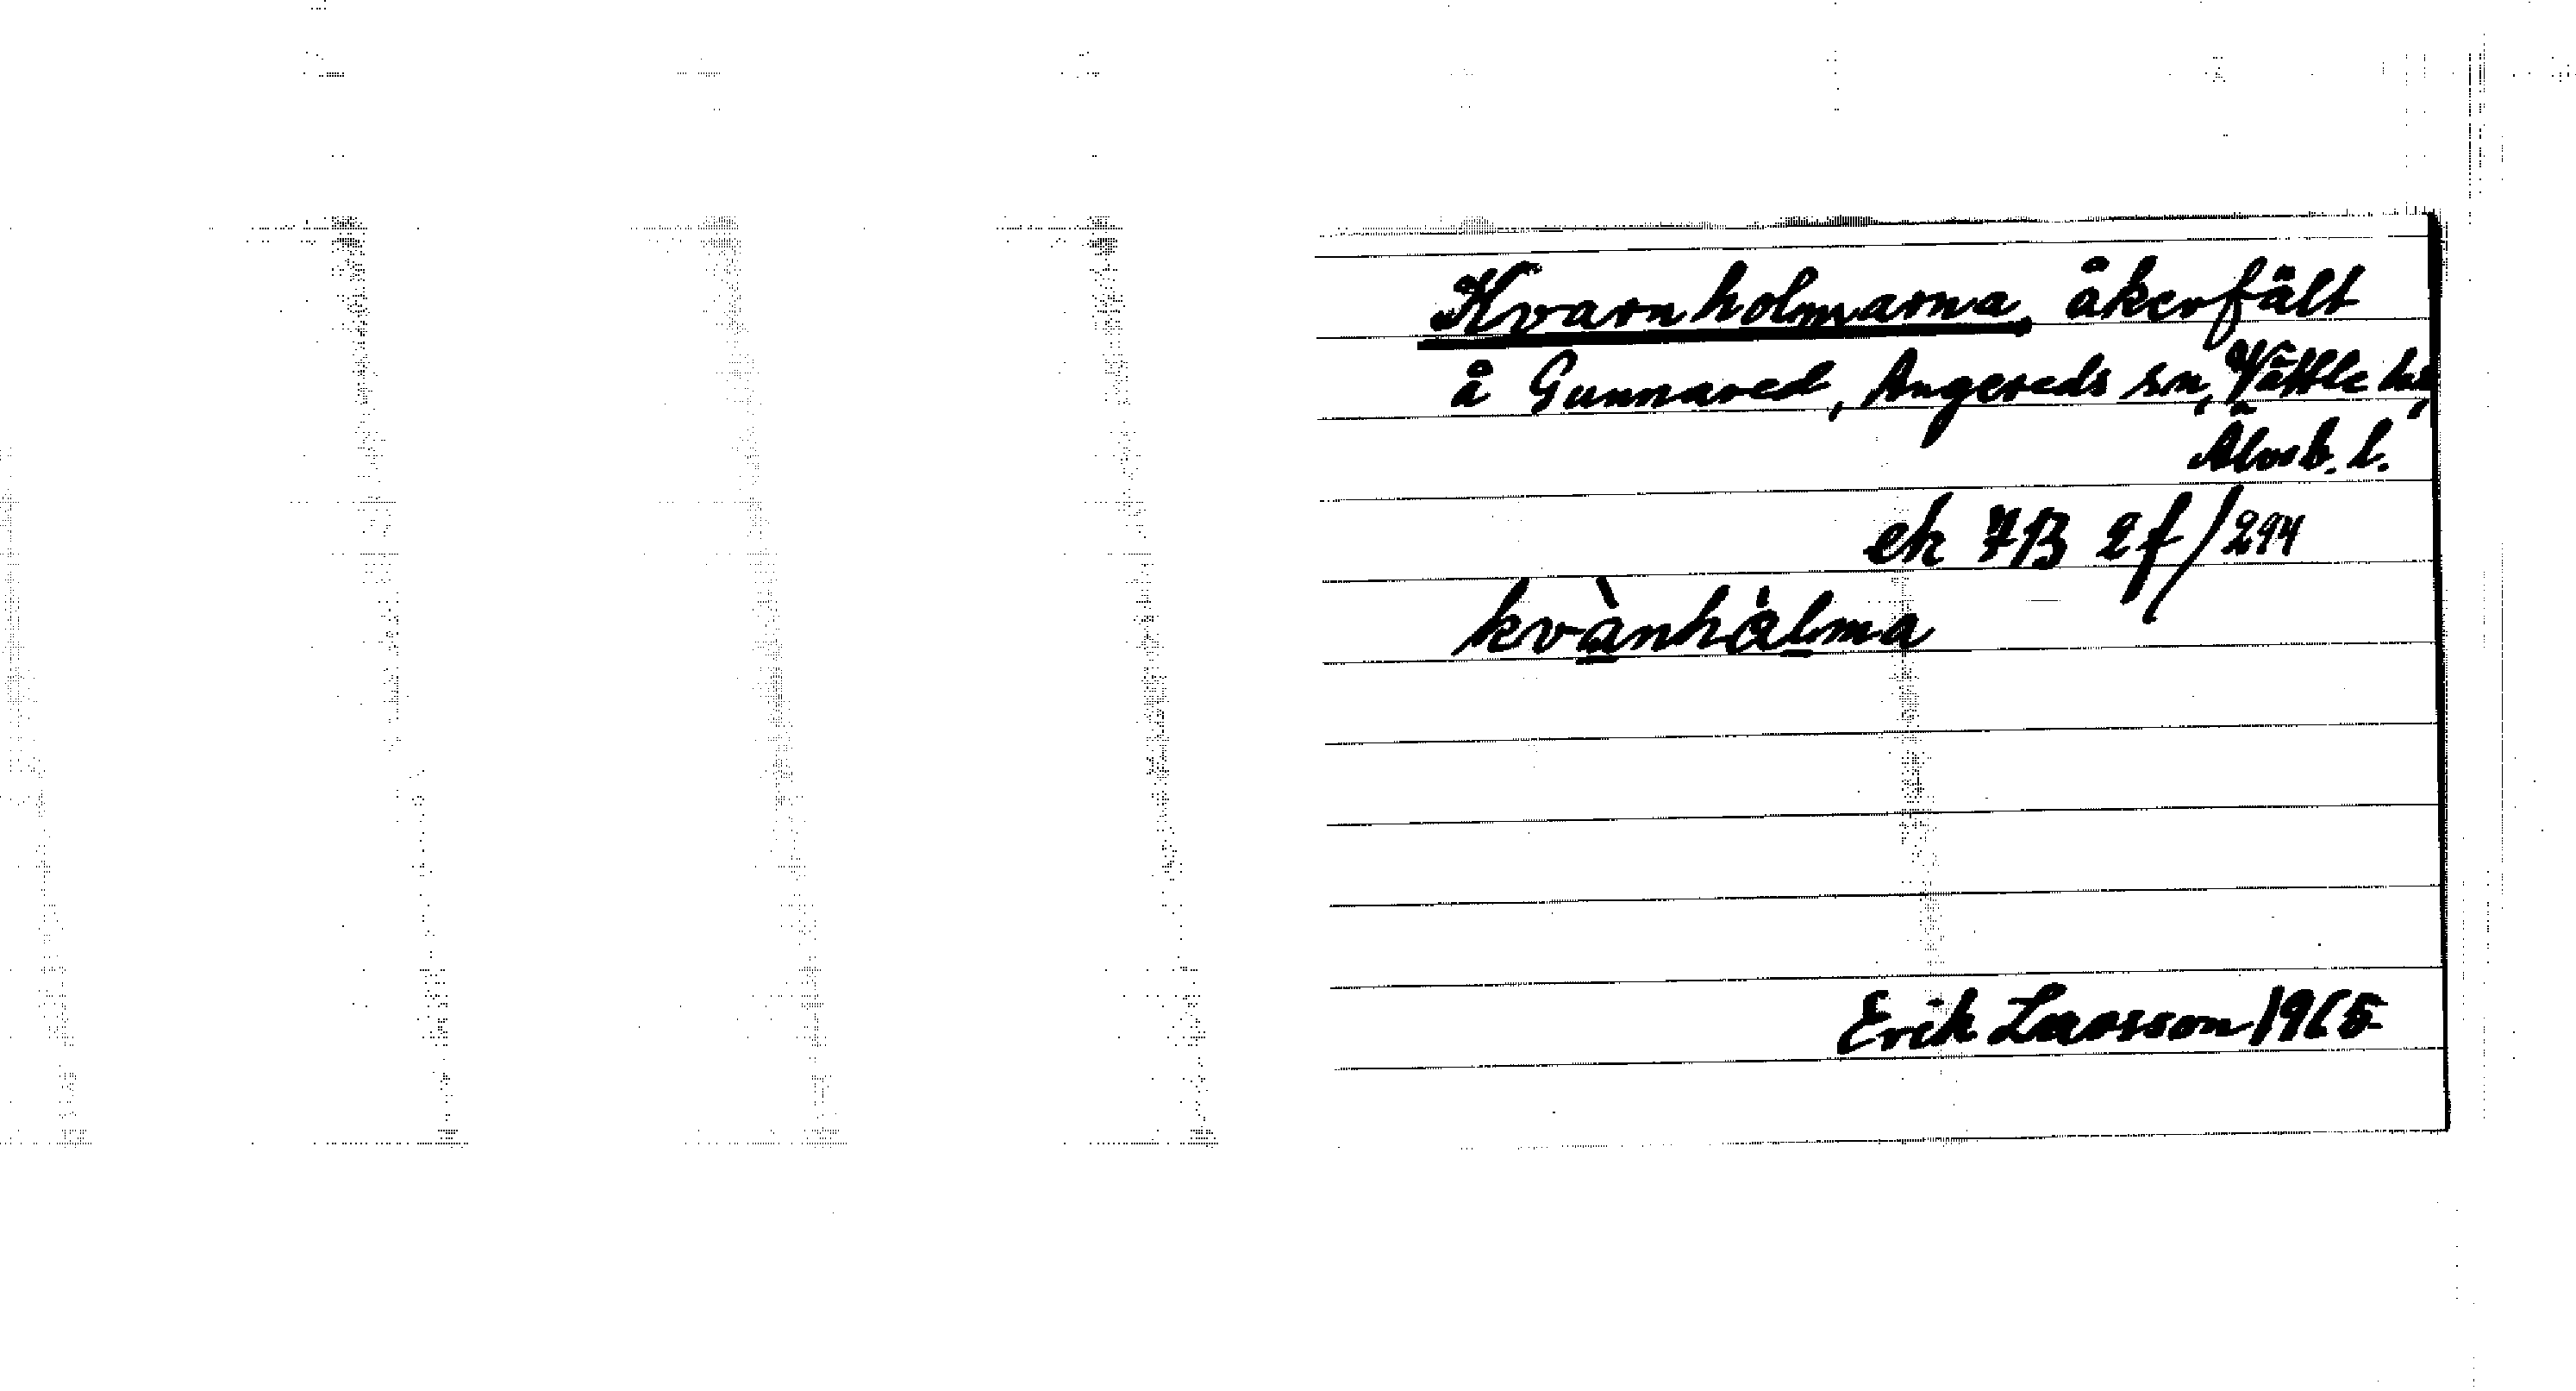 Kvarnholmarna, åkerfält
å Gunnared, Angereds sn, Vättle hd,
Älvsb. l.
ek 7B 2f/294
kvànhàlma
Erik Larsson 1965